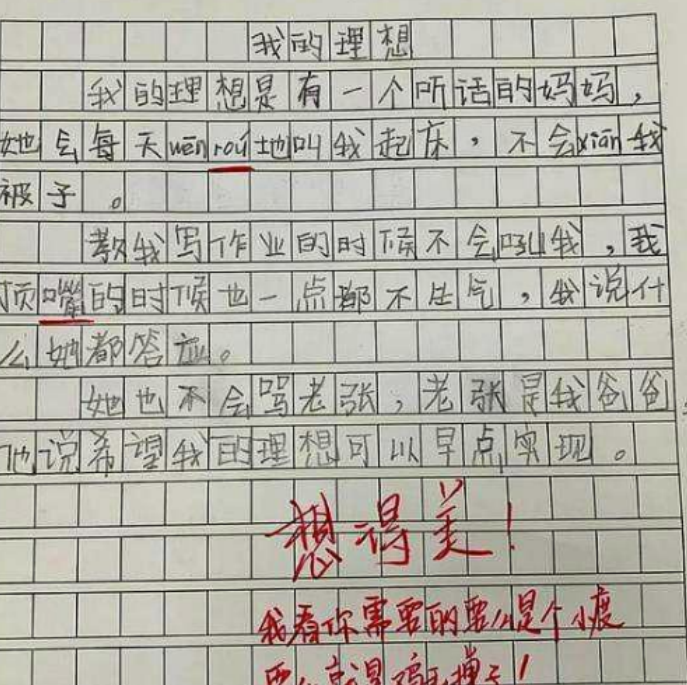 我的理想
我的理想是有一个听话的妈妈，
她会每天wēn roú地叫我起床，不会xiān我
被子。
教我写作业的时候不会吼我，我
顶嘴的时候也一点都不生气，我说什
么她都答应。
她也不会骂老张，老张是我爸爸
他说希望我的理想可以早点实现。
想得美！
我看你需要的要么是个小度
要么就是鸡毛掸子！